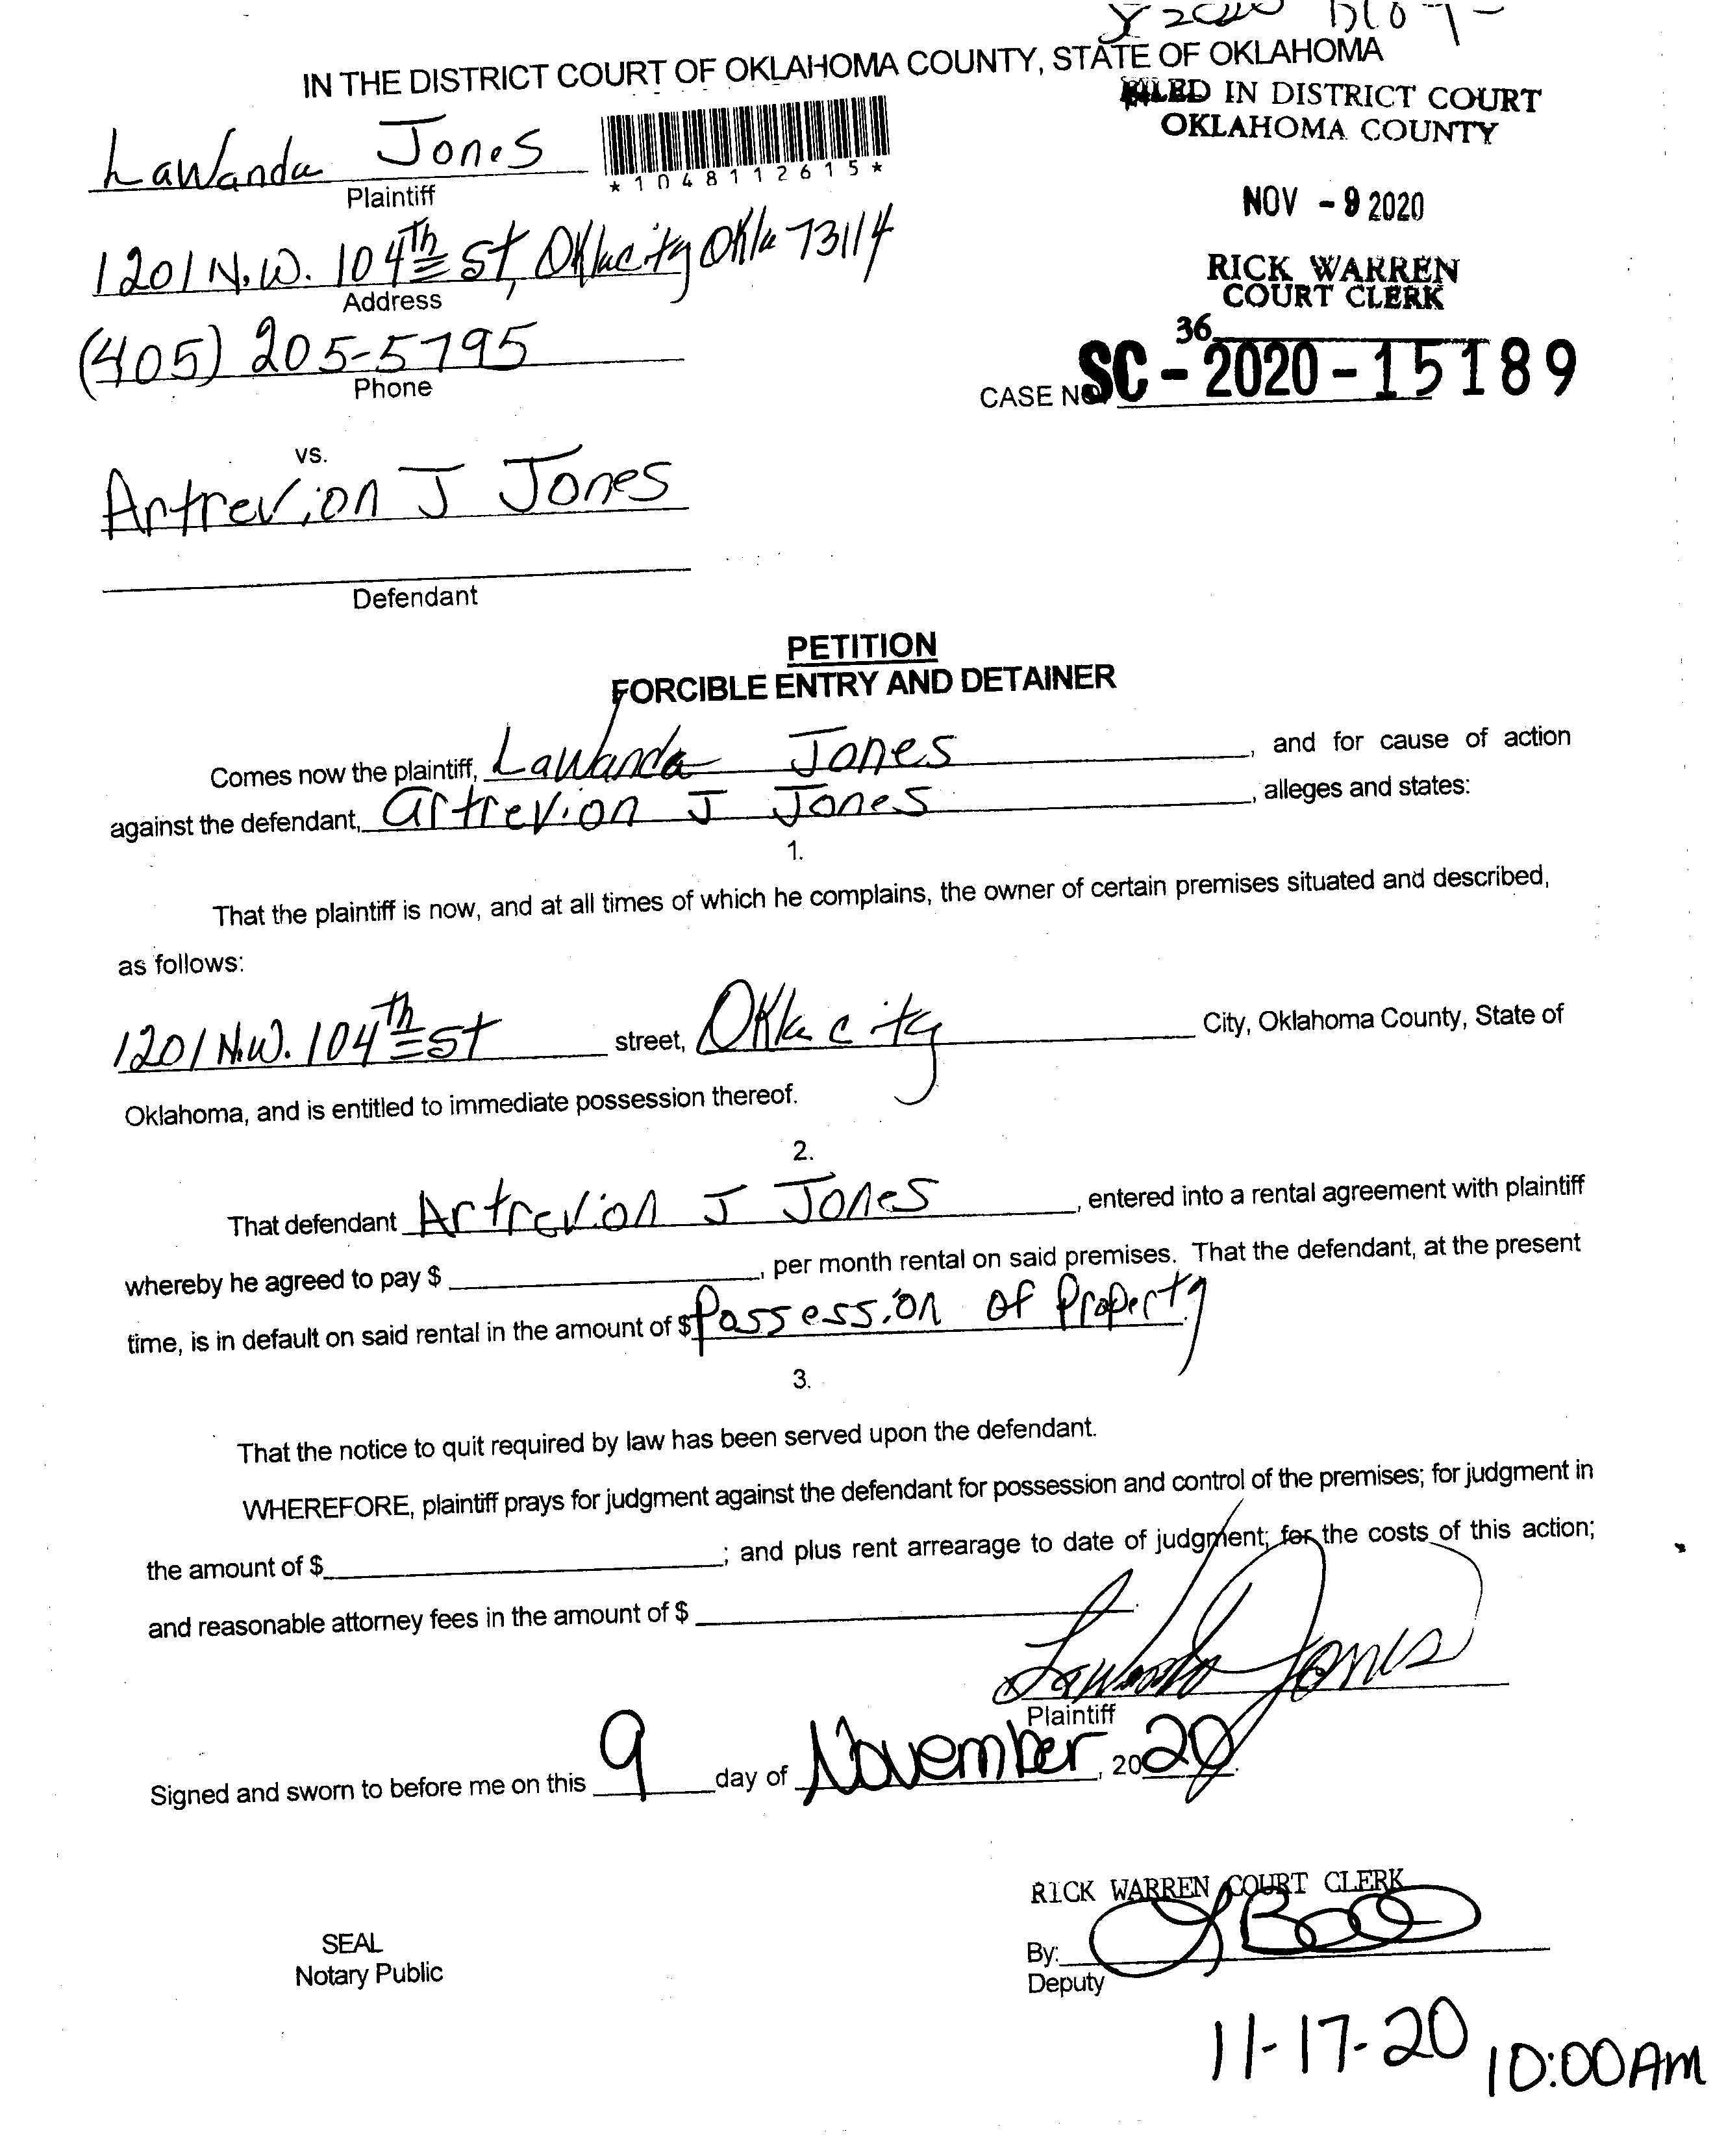 IN THE DISTRICT COURT OF OKLAHOMA COUNTY, STATE OF OKLAHOMA
FILED IN DISTRICT COURT
OKLAHOMA COUNTY
LaWanda Jones
*1048112615*
Plaintiff
NOV - 9 2020
1201 N.W. 104th St, Okla city Okla 73114
Address
RICK WARREN
COURT CLERK
(405) 205-5795
Phone
36
CASE NO. SC - 2020 - 15189
vs.
Artrevion J Jones
Defendant
PETITION
FORCIBLE ENTRY AND DETAINER
Comes now the plaintiff, LaWanda Jones, and for cause of action
against the defendant, Artrevion J Jones, alleges and states:
1.
That the plaintiff is now, and at all times of which he complains, the owner of certain premises situated and described,
as follows:
1201 N.W. 104th St street, Okla city City, Oklahoma County, State of
Oklahoma, and is entitled to immediate possession thereof.
2.
That defendant Artrevion J Jones, entered into a rental agreement with plaintiff
whereby he agreed to pay $ , per month rental on said premises. That the defendant, at the present
time, is in default on said rental in the amount of $ Possession of Property.
3.
That the notice to quit required by law has been served upon the defendant.
WHEREFORE, plaintiff prays for judgment against the defendant for possession and control of the premises; for judgment in
the amount of $ ; and plus rent arrearage to date of judgment; for the costs of this action;
and reasonable attorney fees in the amount of $ .
LaWanda Jones
Plaintiff
Signed and sworn to before me on this 9 day of November, 2020.
RICK WARREN COURT CLERK
SEAL
Notary Public
By:
Deputy
11-17-20 10:00AM